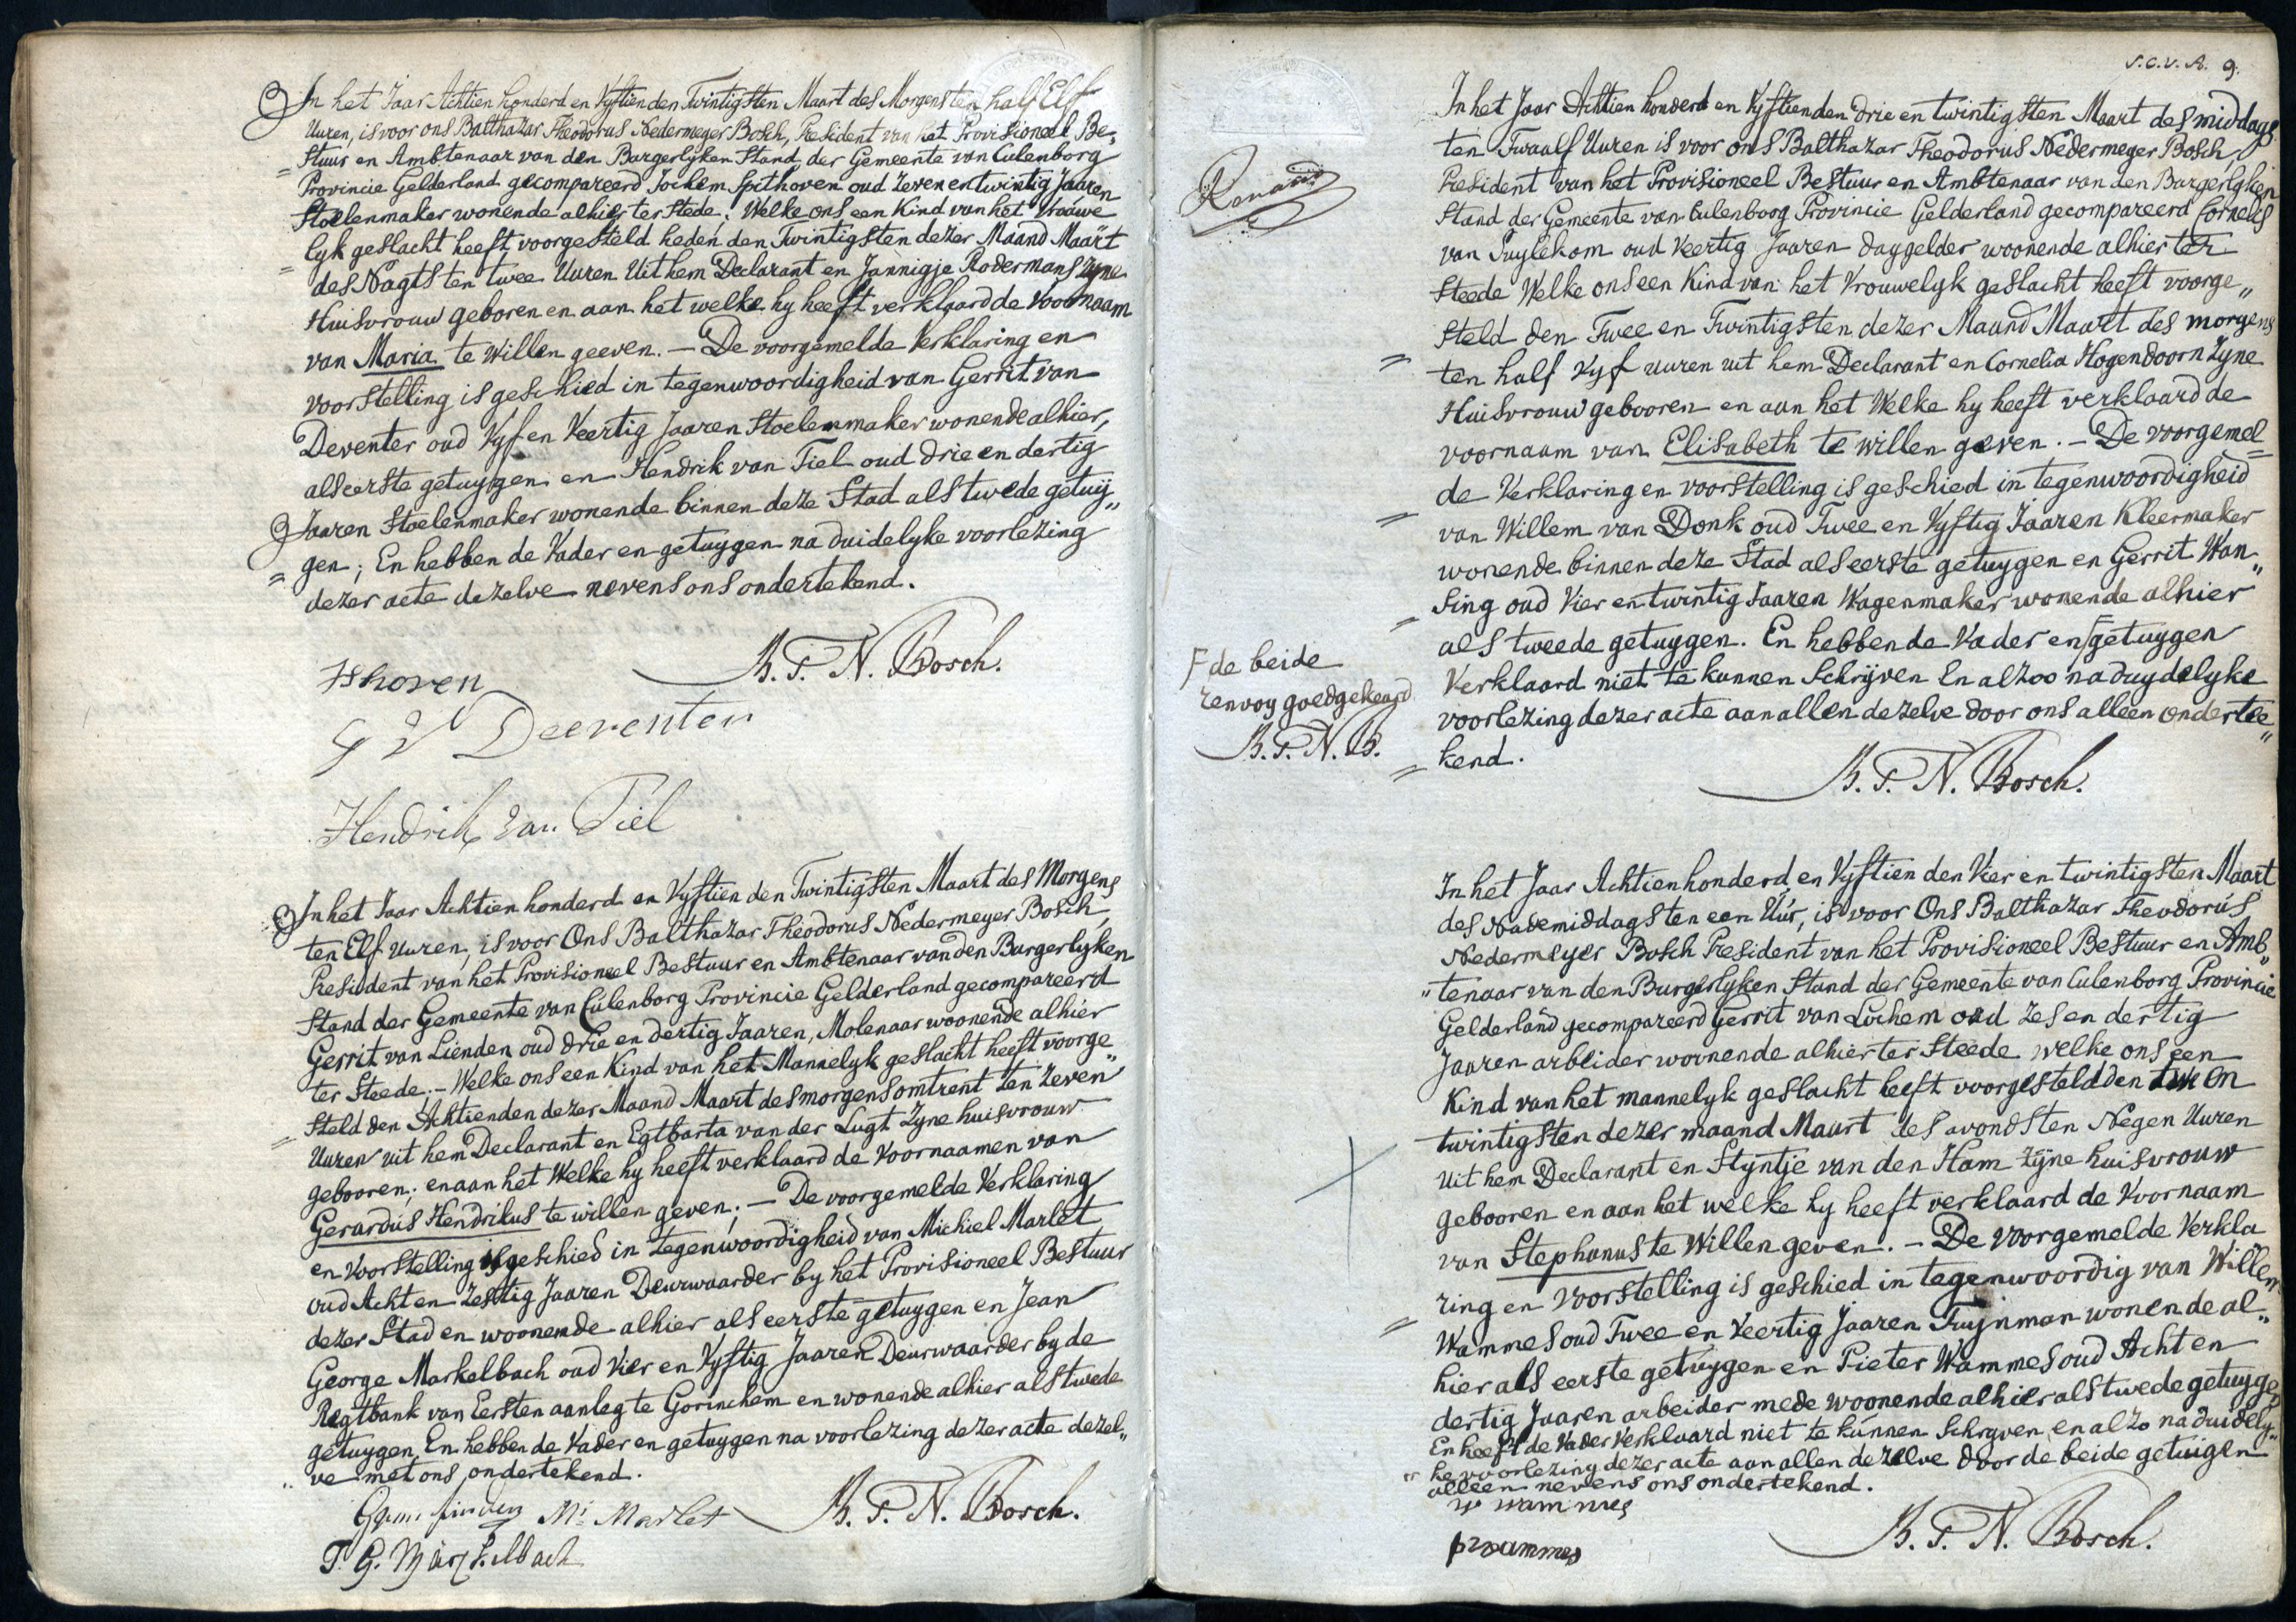 In het Jaar Achtien honderd en Vyftien den Twintigsten Maart des Morgens ten half Elf
Uuren, is voor ons Balthazar Theodorus Nedermeyer Bosch, President van het Provisioneel Be„
„stuur en Ambtenaar van den Burgerlyken Stand der Gemeente van Culenborg
Provincie Gelderland gecompareerd Jochem Spithoven oud Zeven en twintig Jaaren
Stoelenmaker wonende alhier ter Stede. Welke ons een Kind van het Vrouwe
„lyk geslacht heeft voorgesteld heden den Twintigsten dezer Maand Maart
des Nagts ten twee Uuren Uit hem Declarant en Jannigje Rodermans Zyne
Huisvrouw geboren en aan het welke hy heeft verklaard de Voornaam
van Maria te Willen geeven. — De voorgemelde Verklaring en
voorstelling is geschied in tegenwoordigheid van Gerrit van
Deventer oud Vyf en Veertig Jaaren Stoelenmaker wonende alhier,
als eerste getuygen en Hendrik van Tiel oud drie en dertig
Jaaren Stoelenmaker wonende binnen deze Stad als twede getuy„
„gen; En hebben de Vader en getuygen na duidelyke voorlezing
dezer acte dezelve nevens ons ondertekend.
B. T. N. Bosch.
Hendrik van Tiel
In het Jaar Achtien honderd en Vyftien den Twintigsten Maart des Morgens
ten Elf Uuren, is voor Ons Balthazar Theodorus Nedermeyer Bosch,
President van het Provisioneel Bestuur en Ambtenaar van den Burgerlyken
Stand der Gemeente van Culenborg Provincie Gelderland gecompareerd
Gerrit van Lienden oud drie en dertig Jaaren, Molenaar woonende alhier
ter Steede. – Welke ons een Kind van het Mannelyk geslacht heeft voorge„
„steld den Achtienden dezer Maand Maart des morgens omtrent ten Zeven
Uuren uit hem Declarant en Egtbarta van der Lugt Zyne huisvrouw
gebooren; en aan het Welke hy heeft verklaard de Voornaamen van
Gerardus Hendrikus te willen geven; — De voorgemelde Verklaring
en Voorstelling is geschied in tegenwoordigheid van Michiel Marlet
oud Acht en Zestig Jaaren Deurwaarder by het Provisioneel Bestuur
dezer Stad en woonende alhier als eerste getuygen en Jean
George Markelbach oud Vier en Vyftig Jaaren Deurwaarder by de
Regtbank van Eersten aanleg te Gorinchem en wonende alhier als twede
getuygen. En hebben de Vader en getuygen na voorlezing dezer acte dezel„
„ve met ons ondertekend.
M: Marlet B. T. N. Bosch.
9.
In het Jaar Achtien honderd en Vyftien den drie en twintigsten Maart des middags
ten Twaalf Uuren is voor ons Balthazar Theodorus Nedermeyer Bosch
President van het Provisioneel Bestuur en Ambtenaar van den Burgerlyken
Stand der Gemeente van Culenborg Provincie Gelderland gecompareerd Cornelis
van Tuylekom oud Veertig Jaaren daggelder woonende alhier ter
Steede Welke ons een Kind van het Vrouwelyk geslacht heeft voorge„
steld den Twee en Twintigsten dezer Maand Maart des morgens
„ ten half Vyf uuren uit hem Declarant en Cornelia Hogendoorn Zyne
Huisvrouw gebooren en aan het Welke hy heeft verklaard de
voornaam van Elisabeth te willen geven. – De voorgemel„
de Verklaring en voorstelling is geschied in tegenwoordigheid
„ van Willem van Donk oud Twee en Vyftig Jaaren Kleermaker
wonende binnen deze Stad als eerste getuygen en Gerrit Wan„
„sing oud Vier en twintig Jaaren Wagenmaker wonende alhier
als tweede getuygen. En hebben de Vader en getuygen
Γ de beide
renvoy goedgekeurd
B. T. N. B.
Verklaard niet te kunnen Schryven En alzoo na duydelyke
voorlezing dezer acte aan allen dezelve door ons alleen ondertee„
„kend.
B. T. N. Bosch.
In het Jaar Achtien honderd en Vyftien den Vier en twintigsten Maart
des Nademiddags ten een Uur, is voor Ons Balthazar Theodorus
Nedermeyer Bosch President van het Provisioneel Bestuur en Amb„
„tenaar van den Burgerlyken Stand der Gemeente van Culenborg Provincie
Gelderland gecompareerd Gerrit van Lochem oud Zes en dertig
Jaaren arbeider woonende alhier ter Steede welke ons een
Kind van het mannelyk geslacht heeft voorgesteld den en
twintigsten dezer maand Maart des avonds ten Negen Uuren
Uit hem Declarant en Styntje van den Ham Zyne huisvrouw
gebooren en aan het welke hy heeft verklaard de Voornaam
van Stephanus te Willen geven. – De voorgemelde Verkla
„ring en voorstelling is geschied in tegenwoordig van Willem
Wammes oud Twee en Veertig Jaaren Tuynman wonende al„
hier als eerste getuygen en Pieter Wammes oud Acht en
dertig Jaaren arbeider mede woonende alhier als twede getuygen
En heeft de Vader Verklaard niet te kunnen Schryven en alzo na duidely„
„ke voorlezing dezer acte aan allen dezelve door de beide getuigen
alleen nevens ons ondertekend.
W Wammes
p wammes
B. T. N. Bosch.